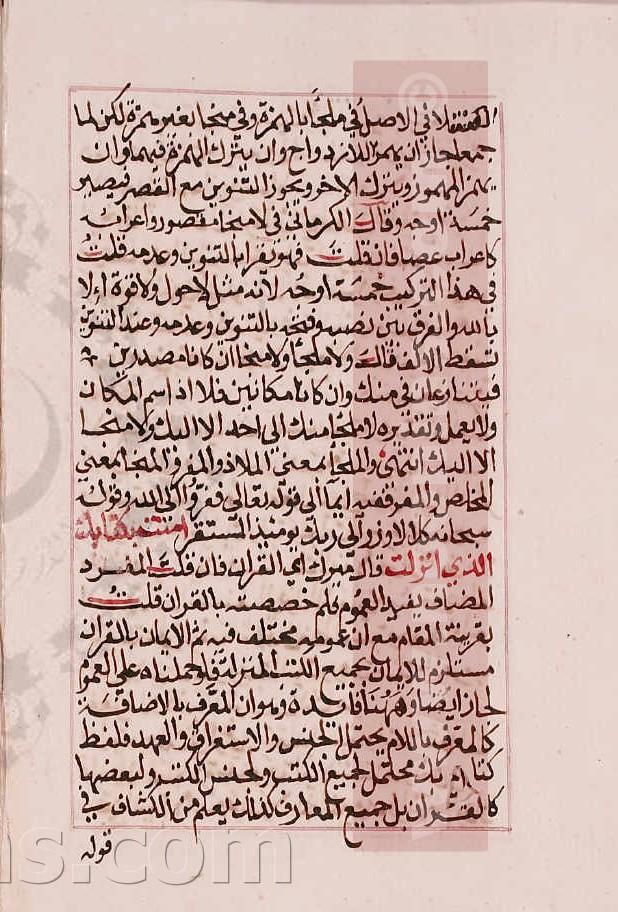 العسقلاني الاصل في ملجأ بالهمزة وفي منجا بغير همزة لكن لما
جمعا جاز ان يهمزا للازدواج وان يترك الهمزة فيهما وان
يهمز المهموز ويترك الاخر ويجوز التنوين مع القصر فيصير
خمسة اوجه وقال الكرماني في لا منجا مقصور واعرابه
كاعراب عصا فان قلت فهو يقرا بالتنوين وعدمه قلت
في هذا التركيب خمسة اوجه لانه مثل لا حول ولا قوة الا
بالله والفرق بين نصبه وفتحه بالتنوين وعدمه وعند التنوين
تسقط الالف قال ولا ملجأ ولا منجا ان كانا مصدرين
فيتنازعان في منك وان كانا مكانين فلا اذ اسم المكان
ولا يعمل وتقديره لا ملجا منك الى احد الا اليك ولا منجا
الا اليك انتهى والملجا بمعنى الملاذ والمفر والمنجا بمعنى
المخلص والمفر ففيه ايما الى قوله تعالى ففروا الى الله وقوله
سبحانه كلا لا وزر الى ربك يومئذ المستقر امنت بكتابك
الذي انزلت قال ميرك اي القران فان قلت المفرد
المضاف يفيد العموم فلم خصصته بالقران قلت
بقرينة المقام مع ان عمومه مختلف فيه ثم الايمان بالقران
مستلزم للايمان بجميع الكتب المنزلة فلو حملناه على العموم
لجاز ايضا وههنا فائدة وهو ان المعرف بالاضافة
كالمعرف باللام يحتمل الجنس والاستغراق والعهد فلفظ
كتابك محتمل لجميع الكتب ولجنس الكتب ولبعضها
كالقران بل جميع المعارف كذلك يعلم من الكشاف في
قوله
ns.com